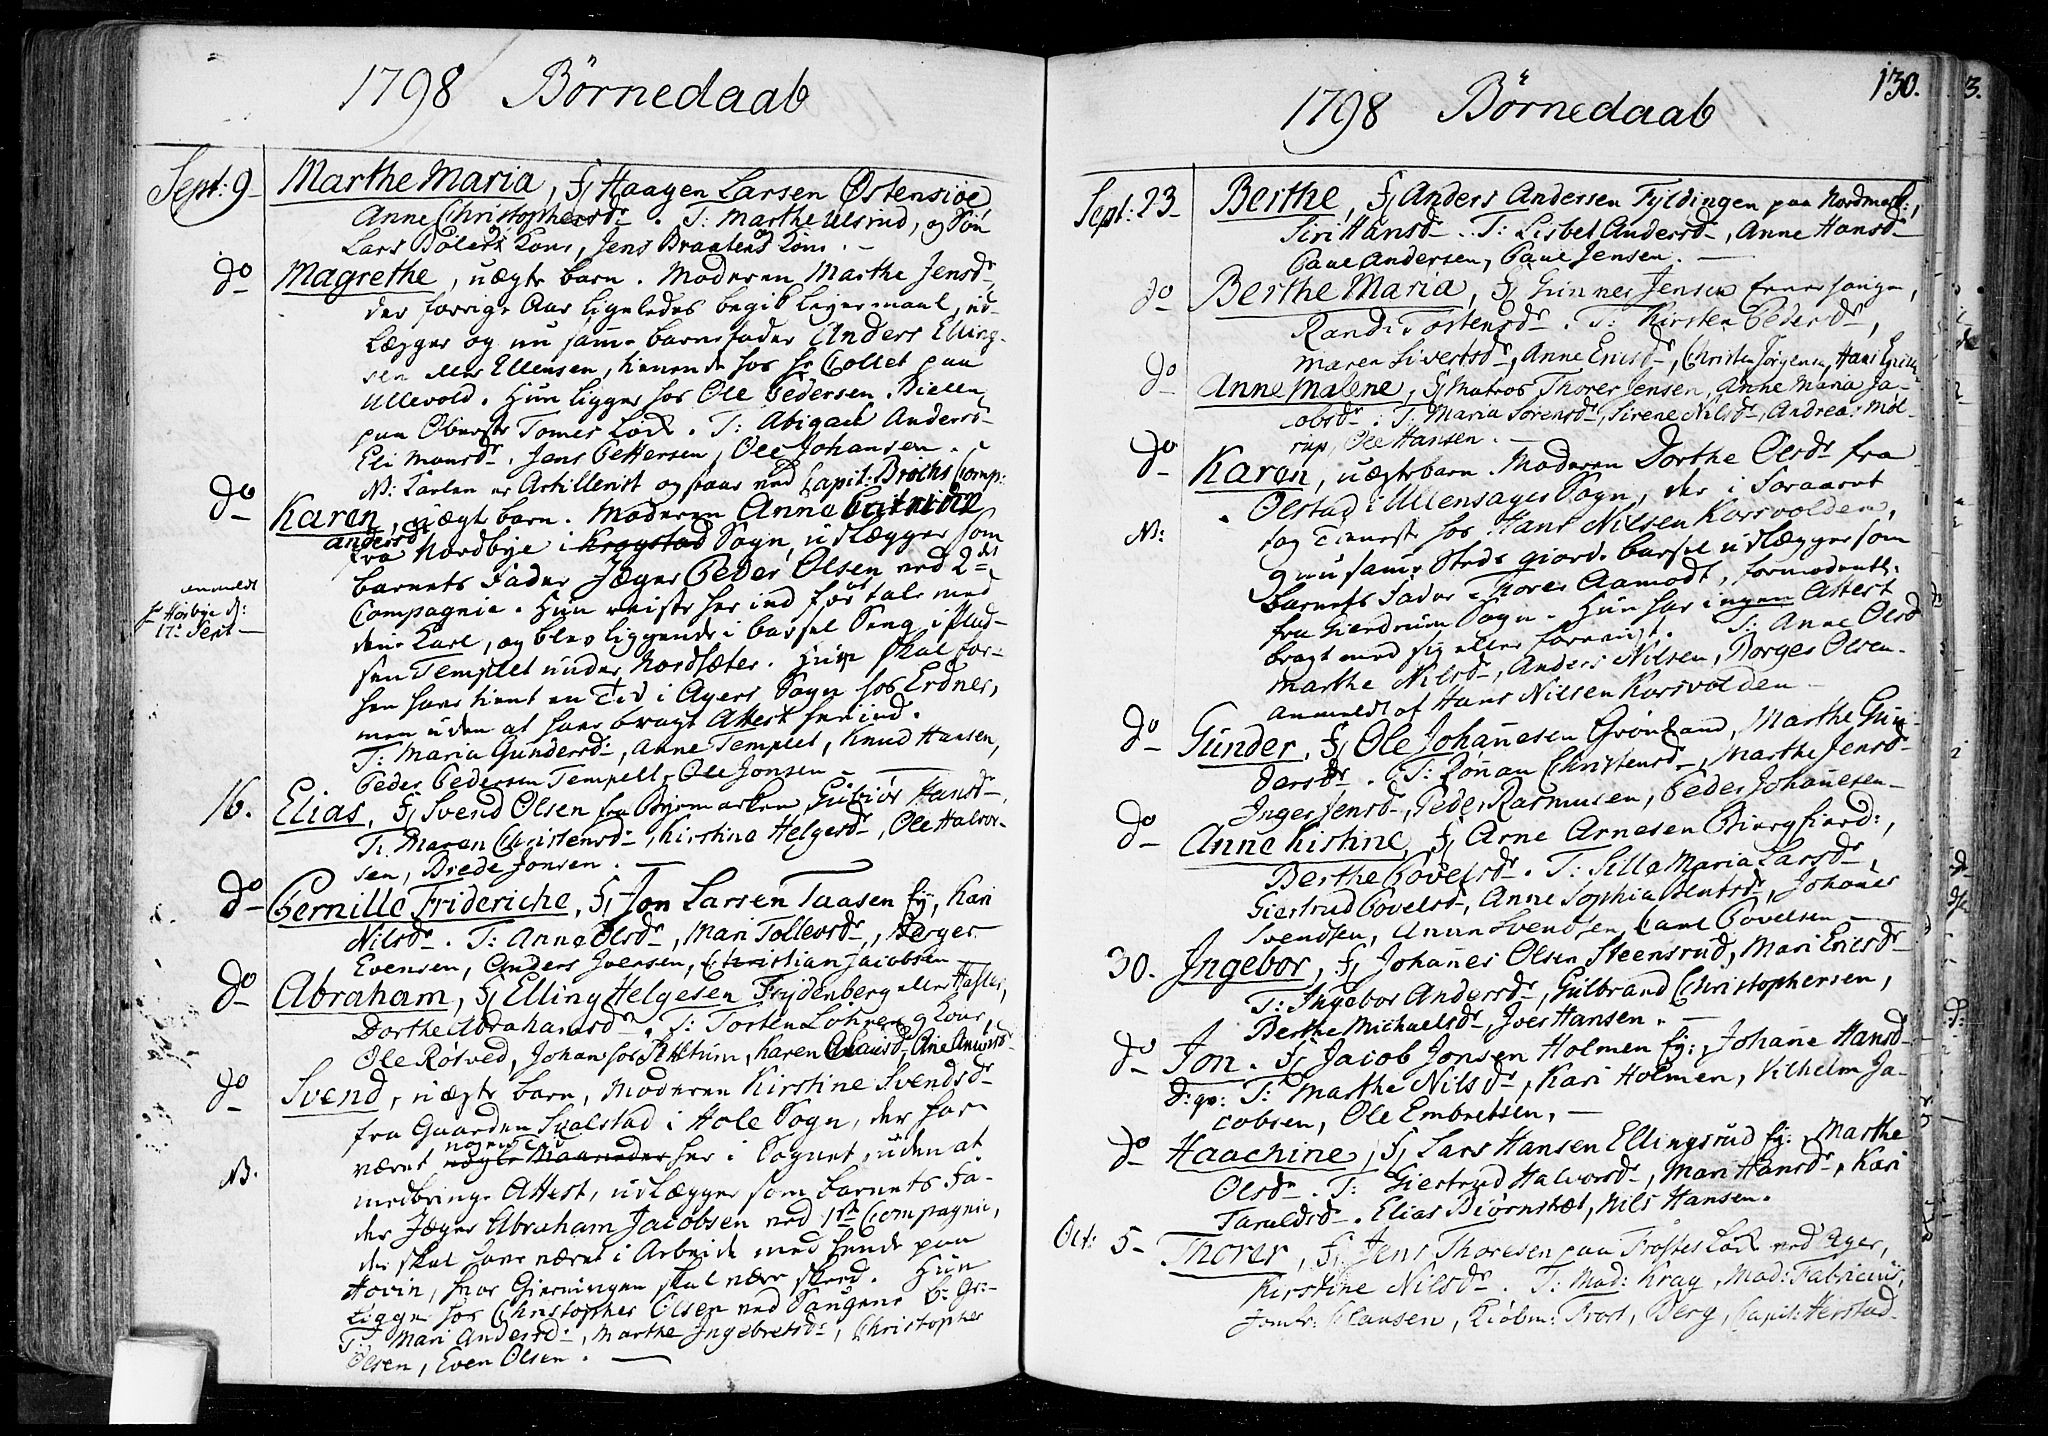 1798 Börnedaab
Sept: 9 Marthe Maria, f, Haagen Larsen Østensiøe
Anne Christophersdr. T: Marthe Ulsrud, og Søn
Lars Bölers Kone, Jens Braatens Kone.
do Magrethe, uægte barn. Moderen Marthe Jensdr,
der forrige Aar ligeledes begik Leiermaal, ud-
lægger og nu samme barnefader Anders Elling-
sen eller Ellensen, tienende hos Hr Collet paa
Ullevold. Hun ligger hos Ole Pedersen
paa Oberste Tomes Løck. T: Abigael Andersdr
Eli Monsdr. Jens Pettersen, Ole Johansen.
NB: Karlen er Artillerist og staar ved Capit: Brochs Comp:
do Karen, uægte barn. Moderen Anne Catrine
Andersdr
fra Nordbye i Krogstad Sogn, udlægger som
barnets Fader Jæger Peder Olsen ved 2det
anmeldt
Compagnie. Hun reiste her ind for tale med
Hr Høibye d:
17: Sept
denne Karl, og blev liggende i barsel Seng i Plad-
sen Templet under Nordsæter. Hun skal for-
hen have tient en Tid i Agers Sogn hos Erdner,
men uden at have bragt Attest herind.
T: Maria Gundersdr, Anne Templet, Knud Hansen,
Peder Pedersen Tempell, Ole Jonsen
16. Elias, f, Svend Olsen fra Byemarken, Gubiør Hansdr.
T. Maren Christensdr, Kirstine Helgesdr, Ole Halvor-
sen, Brede Jonsen.
do Pernille Frideriche, f, Jon Larsen Taasen Ey, Kari
Nilsdr. T: Anne Olsdr, Mari Tollevsdr, Berger
Evensen, Anders Iversen, Christian Jacobsen
do Abraham, f, Elling Helgesen Frydenberg eller Hasler,
Dorthe Abrahamsdr. T: Torsten Lohren og Kone,
Ole Røtved, Johan hos Kiltum, Karen Clausdr, Ane Amundsdr
do Svend, uægte barn, Moderen Kirstine Svendsdr
fra Gaarden Svalstad i Hole Sogn, der har
nogen Tid
været nogle Maaneder her i Sognet, uden at
NB.
medbringe Attest, udlægger som barnets Fa-
der Jæger Abraham Jacobsen ved 1ste Compagnie,
der skal have været i Arbeide med hende paa
Hovin, hvor Gierningen skal være skeed. Hun
ligger hos Christopher Olsen ved Saugene b: Gr:
T: Mari Andersdr, Marthe Ingebretsdr, Christopher
Olsen, Even Olsen.
130.
1798 Börnedaab
Sept: 23 Berthe, f, Anders Andersen Fyldingen paa Nordmark:,
Siri Hansdr. T: Lisbet Andersdr, Anne Hansdr
Paul Andersen, Paul Jensen.
do Berthe Maria, f, Gunner Jensen Ennersengen,
Randi Tostensdr. T: Kirsten Pedersdr,
Maren Sivertsdr, Anne Ericsdr, Christen Jørgensen, Hans
do Anne Malene, f, Matros Thorer Jensen, Anne Maria Ja-
cobsdr. T: Maria Sørensdr, Sirene Nilsdr, Andreas Møl-
rup, Ole Hansen.
do Karen, uægte barn. Moderen Dorthe Olsdr fra
Olstad i Ullensager Sogn, der i Foraaret
NB:
tog Tieneste hos Hans Nilsen Korsvolden,
og nu samme Steds giorde barsel udlægger som
barnets Fader Thorer Aamodt, formodentl:
fra Gierdrum Sogn. Hun har ingen Attest
bragt med sig eller foreviist. T: Anne Olsdr
Marthe Nilsdr, Anders Nilsen, Borger Olsen.
anmeldt af Hans Nilsen Korsvolden
do Gunder, f, Ole Johannesen Grønland, Marthe Gun-
dersdr. T: Rønau Christensdr, Marthe Jensdr
Inger Jensdr, Peder Rasmusen, Peder Johannesen
do Anne Kistine, f, Arne Arnesen Biergfierd:,
Berthe Povelsdr. T: Sille Maria Larsdr,
Giertrud Povelsdr, Anne Sophia Bentsdr, Johannes
Svendsen, Anun Svendsen, Carl Povelsen
30. Ingebor, f, Johannes Olsen Steensrud, Mari Ericsdr
T: Ingebor Andersdr, Gulbrand Christophersen,
Berthe Michaelsdr, Iver Hansen.
do Jon. f, Jacob Jonsen Holmen Ey:, Johanne Hansdr
D: qv: T: Marthe Nilsdr, Kari Holmen, Vilhelm Ja-
cobsen, Ole Embretsen,
do Haachine, f, Lars Hansen Ellingsrud Ey:, Marthe
Olsdr. T: Giertrud Halvorsdr, Mari Hansdr, Kari
Taraldsdr. Elias Biørnstæt, Nils Hansen.
Oct: 5 Thorer, f, Jens Thoresen paa Frostes Løck ved Ager,
Kirstine Nilsdr. T: Mad: Krag, Mad: Fabricius,
Jomfr: Clausen, Kiöbm: Trost, Berg, Capit: Herstad